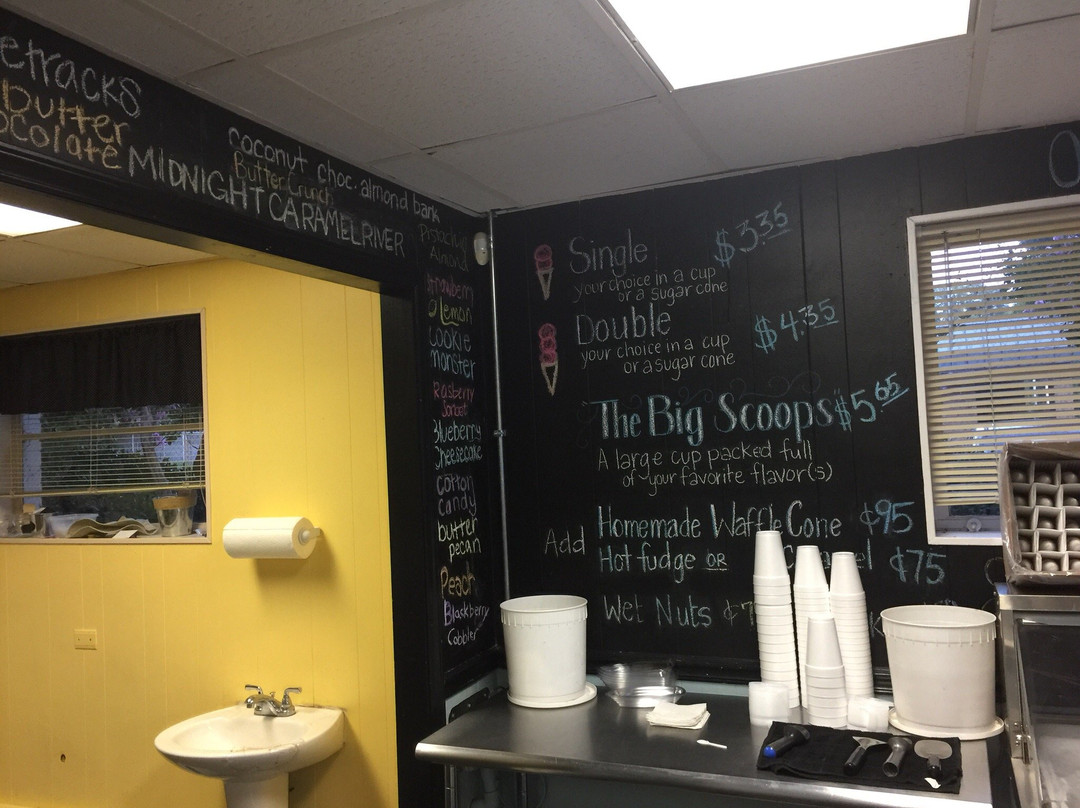 etracks
butter
ocolate
MIDNIGHT CARAMEL RIVER
coconut choc. almond bark
Butter Crunch
Pistachio
Almond
Strawberry
Lemon
cookie
monster
Rasberry
Sorbet
Blueberry
Cheesecake
cotton
candy
butter
pecan
Peach
Blackberry
Cobbler
Single $3.35
your choice in a cup
or a sugar cone
Double $4.35
your choice in a cup
or a sugar cone
The Big Scoops $5.65
A large cup packed full
of your favorite flavor(s)
Add
Homemade Waffle Cone ¢95
Hot fudge OR C el ¢75
Wet Nuts ¢7